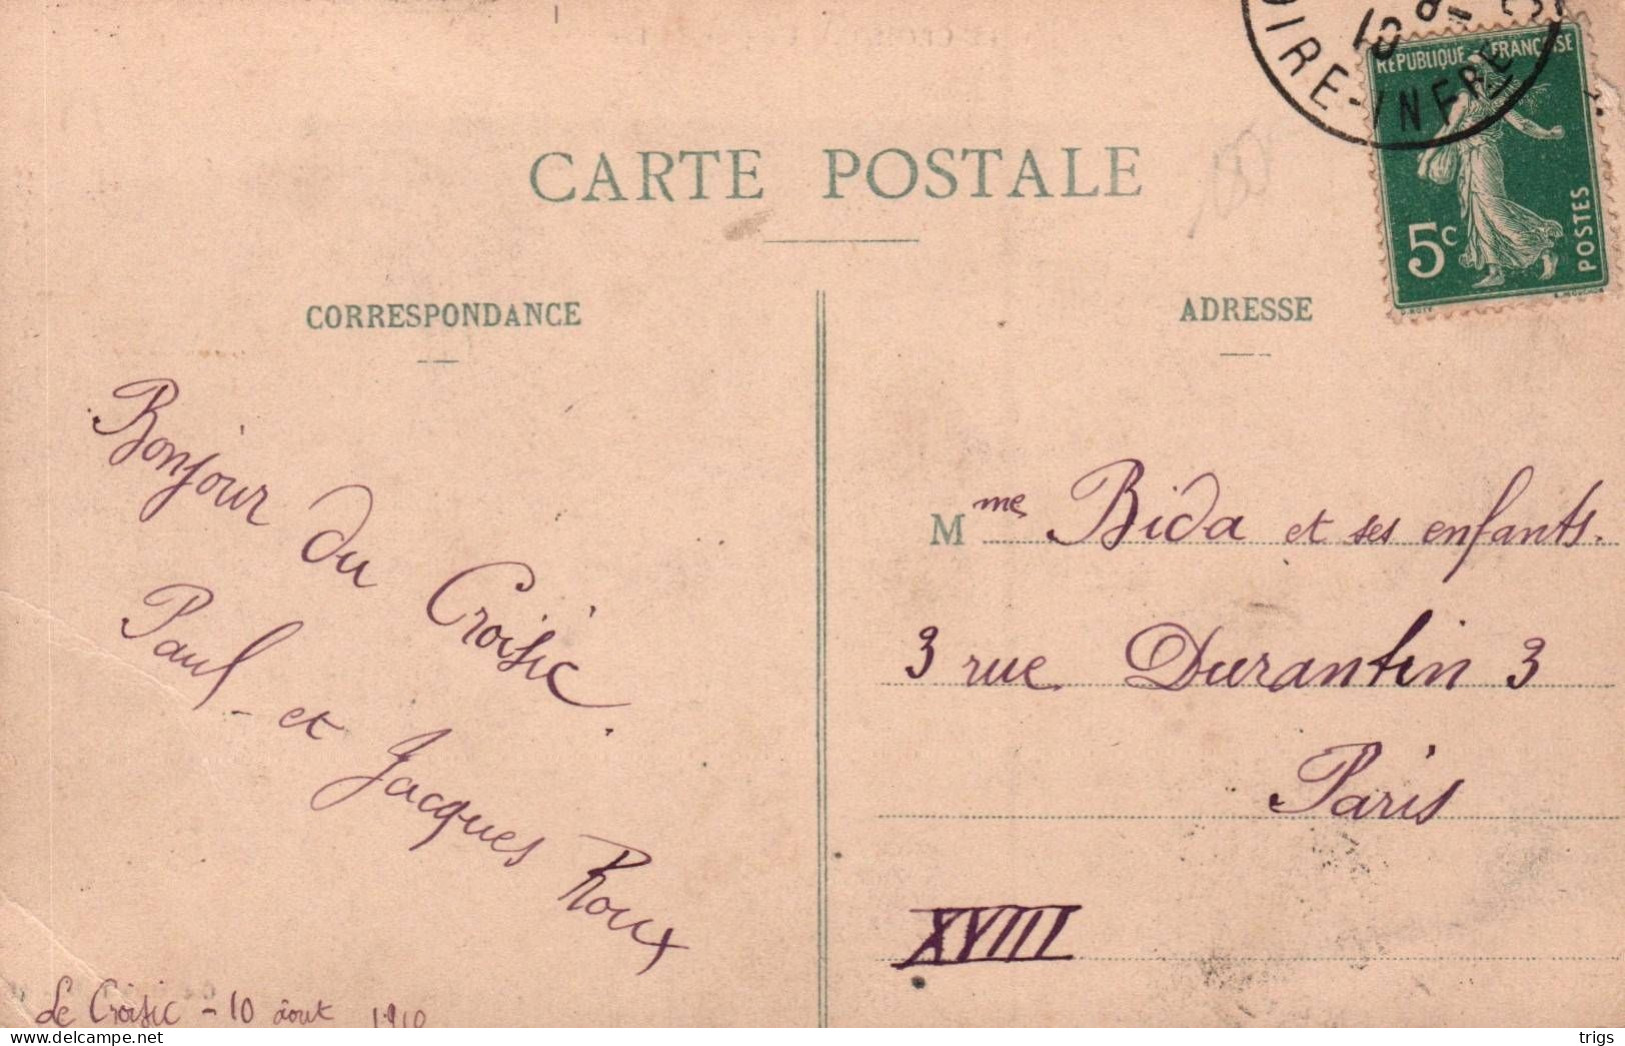 10 8-
OIRE-INFRE
REPUBLIQUE FRANÇAISE
5c
POSTES
CARTE POSTALE
CORRESPONDANCE
ADRESSE
Bonjour du Croisic.
Paul - et Jacques Roux
Le Croisic - 10 août 1910
Mme Bida et ses enfants.
3 rue Durantin 3
Paris
XVIII
trigs